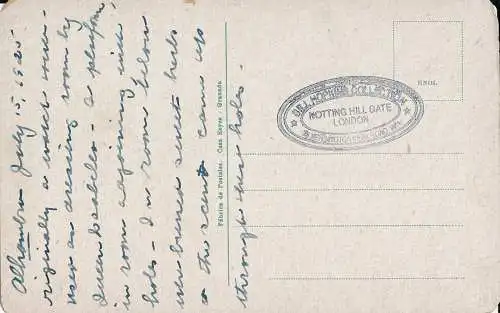 Alhambra July 15, 1925
originally a water room -
used as dressing room by
Queen Isabella - a
in room adjoining incense
holes - In room below
were burned sweet herbs
& the scent came up
through these holes -
Fábrica de Postales. Casa Reyes - Granada
NOTTING HILL GATE
LONDON
COLLECTION